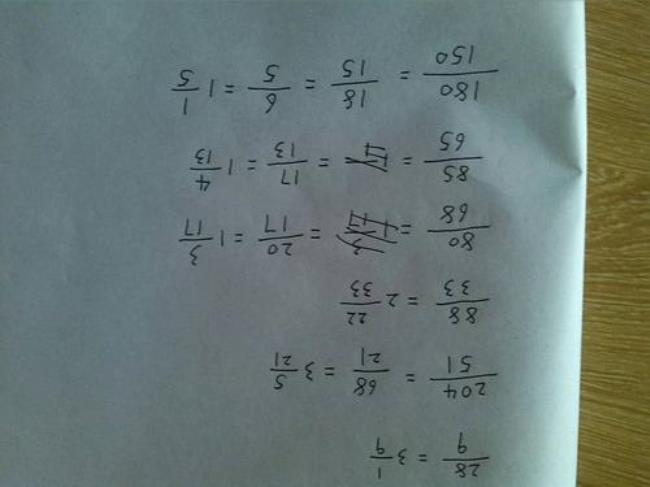 28/9 = 3 1/9
204/51 = 68/21 = 3 5/21
88/33 = 2 22/33
80/68 = = 20/17 = 1 3/17
85/65 = = 17/13 = 1 4/13
180/150 = 18/15 = 6/5 = 1 1/5